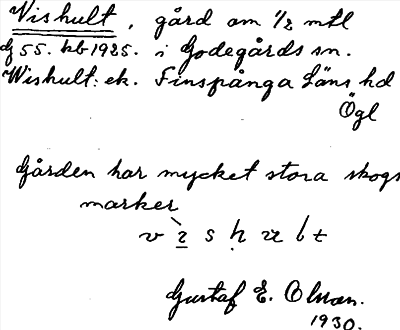 Vishult, gård om 1/2 mtl
G 55. kb 1925. i Godegårds sn.
Wishult: ek. Finspånga Läns hd
Ögl
Gården har mycket stora skogs
marker
Gustaf E. Olsson.
1930.